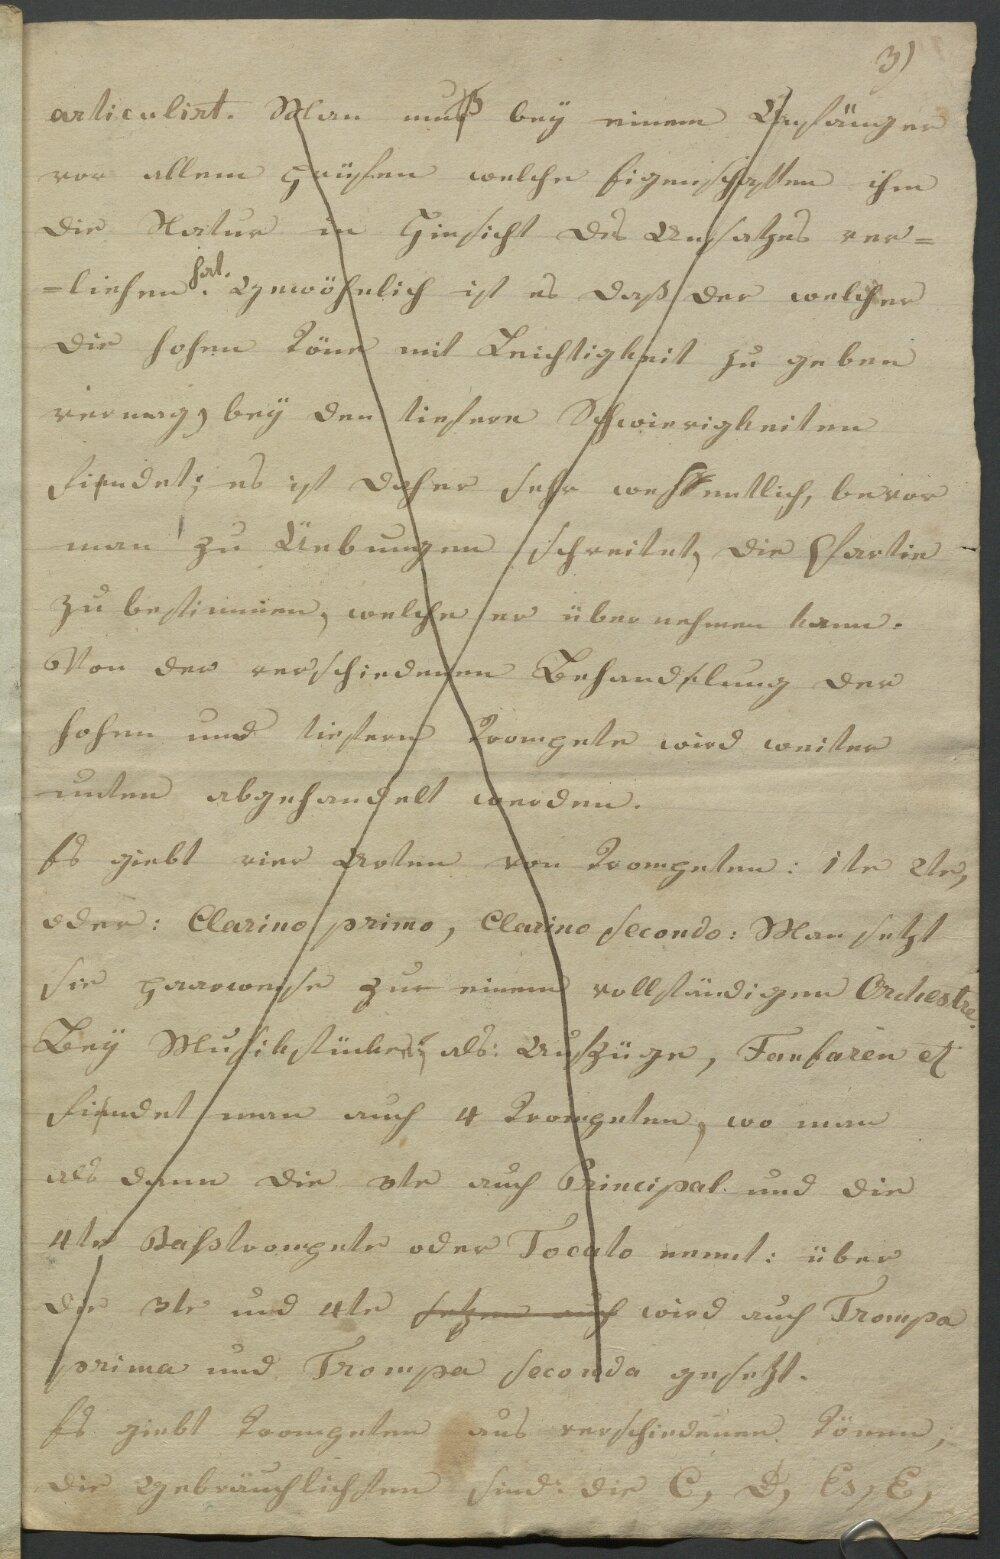 3)
articulirt. Man muß bey einem Anfänger
vor allem prüfen welche Eigenschaften ihm
die Natur in Hinsicht des Ansatzes ver=
=liehen hat. Gewöhnlich ist es daß der welcher
die hohen Töne mit Leichtigkeit zu geben
vermag, bey den tiefern Schwierigkeiten
findet; es ist daher sehr wesentlich, bevor
man zu Uebungen schreitet, die Partie
zu bestimmen, welche er übernehmen kann.
Von der verschiedenen Behandlung der
hohen und tiefern Trompete wird weiter
unten abgehandelt werden.
Es giebt vier Arten von Trompeten: 1te 2te,
oder: Clarino primo, Clarino secondo: Man setzt
sie paarweise zur einem vollständigen Orchestre.
Bey Musikstücken; als: Aufzüge, Fanfaren etc
findet man auch 4 Trompeten, wo man
als dann die 3te auch Principal und die
4te Baßtrompete oder Tocato nennt: über
die 3te und 4te setzen auch wird auch Trompa
prima und Trompa seconda gesetzt.
Es giebt Trompeten aus verschiedenen Tönen,
die Gebräuchlichsten sind: die C, D, Es, E,